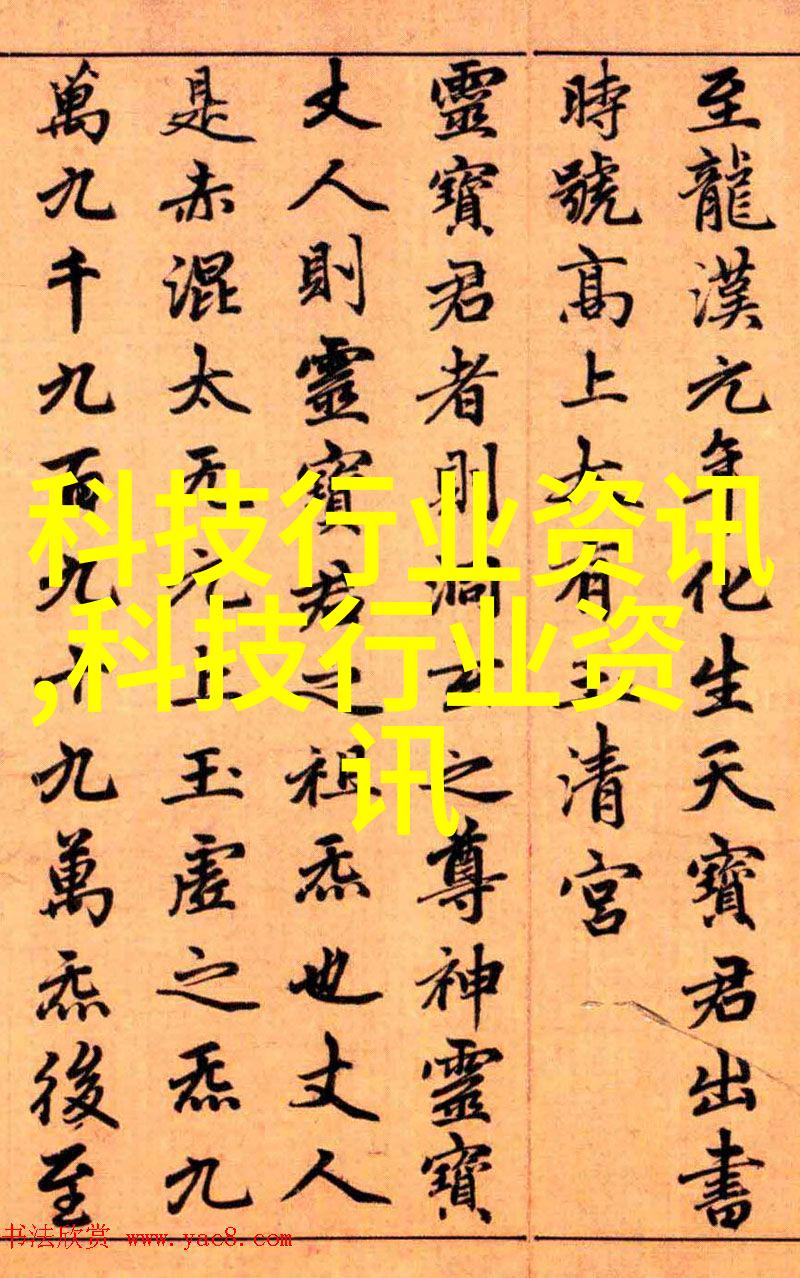 至龍漢元年化生天寶君出書
時號髙上大有玉清宮
靈寶君者則洞玄之尊神靈寶
丈人則靈寶君之祖炁也丈人
是赤混太无元上玉虛之炁九
萬九千九百九十九萬炁後至
科技行业资讯
,科技行业资
讯
书法欣赏 www.yac8.com